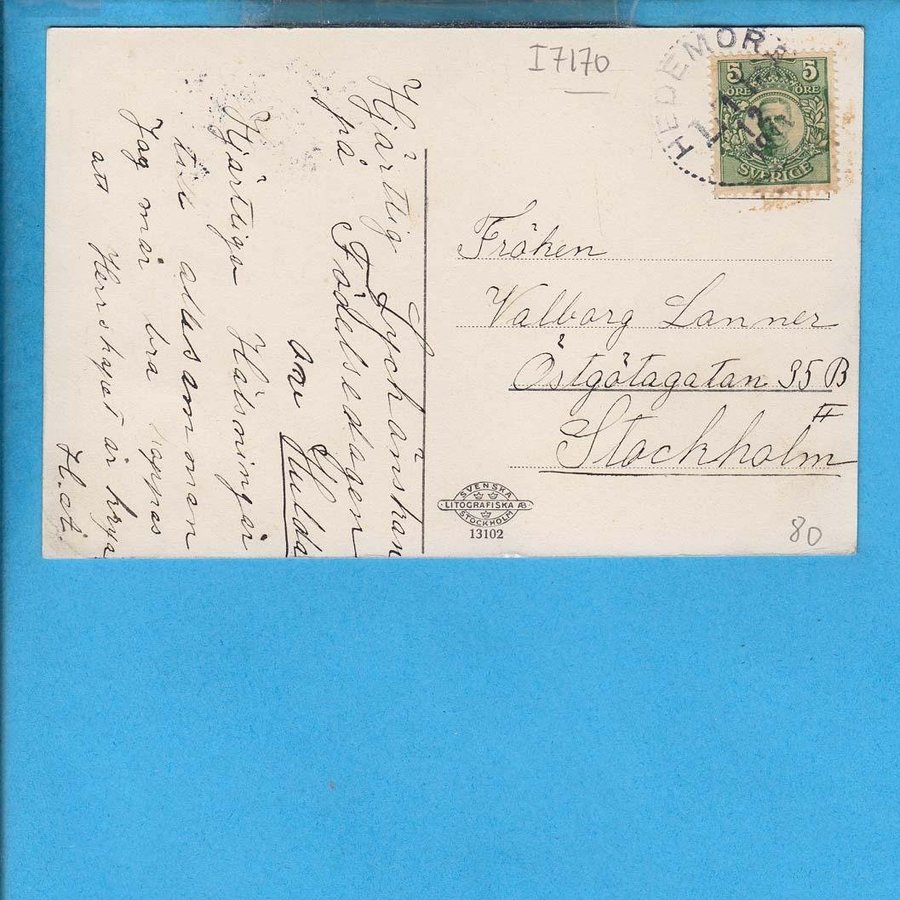 I7170
HEDEMORA
12
1911
5 5
ÖRE ÖRE
SVERIGE
Hjärtlig Lyckönskan
på Födelsedagen
av Hulda
Hjärtliga Hälsningar
till allesamman
Jag mår bra hoppas
att Herrskapet är krya
H. A.
Fröken
Valborg Lanner
Östgötagatan 35 B
II
Stockholm
SVENSKA
LITOGRAFISKA AB
STOCKHOLM
13102
80